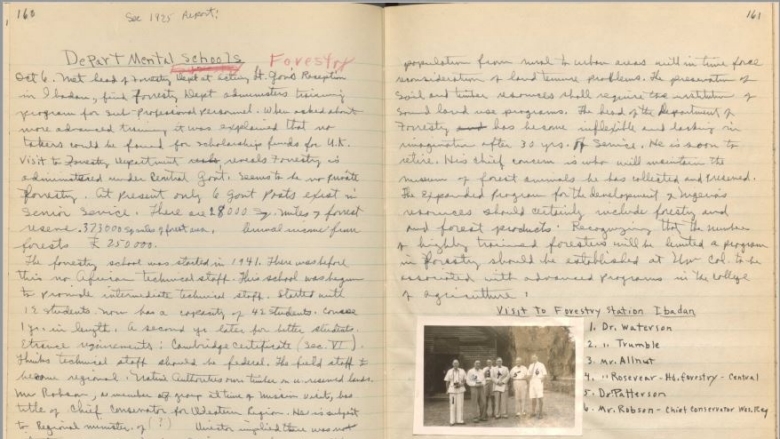 160
See 1925 Report!
DepartMental Schools Forestry
Oct 6. Met head of Forestry Dept at acting Lt. Gov's Reception
in Ibadan, find Forestry Dept administers training
program for sub-professional personnel. When asked about
more advanced training it was explained that no
takers could be found for scholarship funds for U.K.
Visit to Forestry Department reveals Forestry is
administered under Central Govt. Seems to be no private
forestry. At present only 6 Govt Posts exist in
Senior Service. There are 28000 sq. miles of forest
reserve. 373000 sq miles of forest area. Annual income from
forests £ 250000.
The forestry school was started in 1941. There was before
this no African technical staff. This school was begun
to promote intermediate technical staff. Started with
12 students now has a capacity of 42 students. Course
1 yr. in length. A second yr. later for better students.
Etrance reqirements: Cambridge Certificate (Sec. VI).
Thinks technical staff should be federal. The field staff to
become regional. Native Authorities own timber in un-reserved lands.
Mr Robson, a member of group at time of Mission visit, has
title of Chief Conservator for Western Region. He is subject
to Regional minister of (?) Director implied there was not
161
population from rural to urban areas will in time force
consideration of land tenure problems. The preservation of
soil and timber resources shall require the institution of
sound land use programs. The head of the Department of
Forestry has become inflexible and lacking in
imagination after 30 yrs. of service. He is soon to
retire. His chief concern is who will maintain the
museum of forest animals he has collected and preserved.
The expanded program for the development of Nigeria's
resources should certainly include forestry and
and forest products. Recognizing that the number
of highly trained foresters will be limited a program
in forestry should be established at Univ Col. to be
associated with advanced programs in the college
of agriculture.
Visit To Forestry Station Ibadan
1. Dr. Waterson
2. " Trumble
3. Mr. Allnut
4. " Rosevear - Hd. forestry - Central
5. Dr. Patterson
6. Mr. Robson - Chief Conservator Wes. Reg